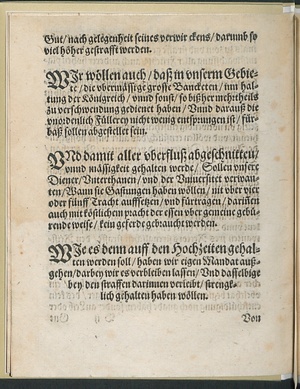 Gut / nach gelegenheit seines verwirckens / darumb so
viel höher gestrafft werden.
WIr wöllen auch / daß in vnserm Gebie-
te / die vbermässige grosse Bancketen / inn hal-
tung der Königreich / vnnd sonst / so bißher mehrtheils
zu verschwendung gedienet haben / Vnnd darauß die
vnordenlich Füllerey nicht wenig entsprungen ist / für-
baß sollen abgestellet sein.
VNd damit aller vberfluß abgeschnitten /
vnnd mässigkeit gehalten werde / Sollen vnsere
Diener / Vnterthanen / vnd der Vniuersitet verwan-
ten / Wann sie Gastungen haben wöllen / nit vber vier
oder fünff Tracht aufffsetzen / vnd fürtragen / darinnen
auch mit köstlichem pracht der essen vber gemeine gebü-
rende weise / kein geferde gebraucht werden.
WIe es denn auff den Hochzeiten gehal-
ten werden soll / haben wir eigen Mandat auß-
gehen / darbey wir es verbleiben lassen / Vnd dasselbige
bey den straffen darinnen verleibt / strengk-
lich gehalten haben wöllen.
Von